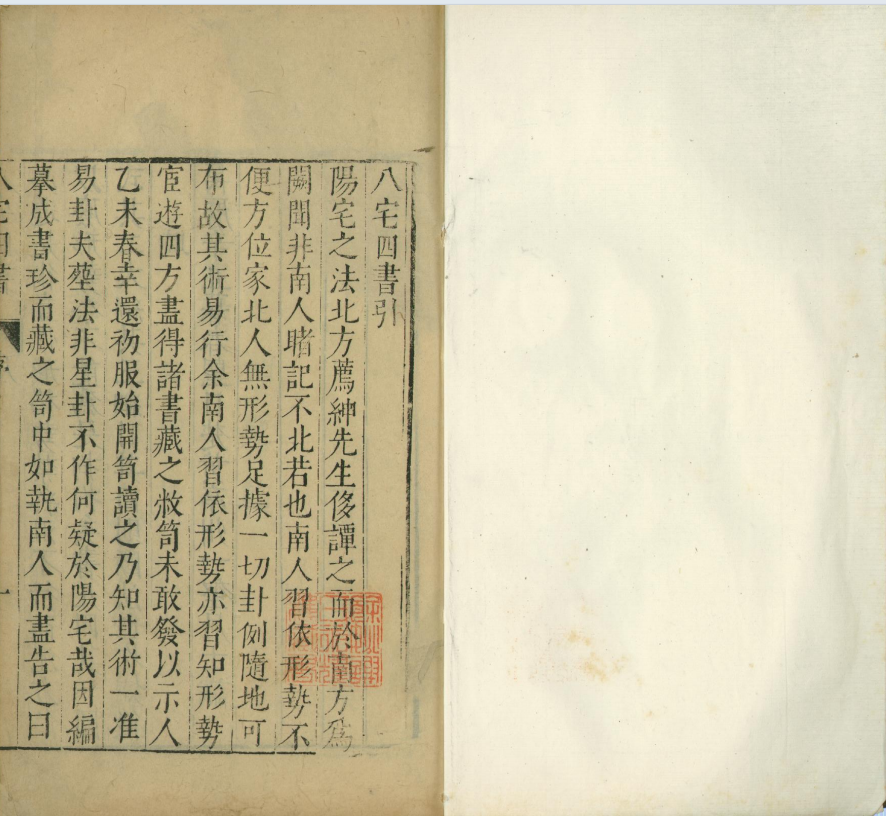 八宅四書引
陽宅之法北方薦紳先生侈譚之而於南方為
闕聞非南人睹記不北若也南人習依形勢不
便方位家北人無形勢足據一切卦例隨地可
布故其術易行余南人習依形勢亦習知形勢
宦遊四方盡得諸書藏之敝笥未敢發以示人
乙未春幸還初服始開笥讀之乃知其術一准
易卦夫塟法非星卦不作何疑於陽宅哉因編
摹成書珍而藏之笥中如執南人而盡告之曰
八宅四書
一